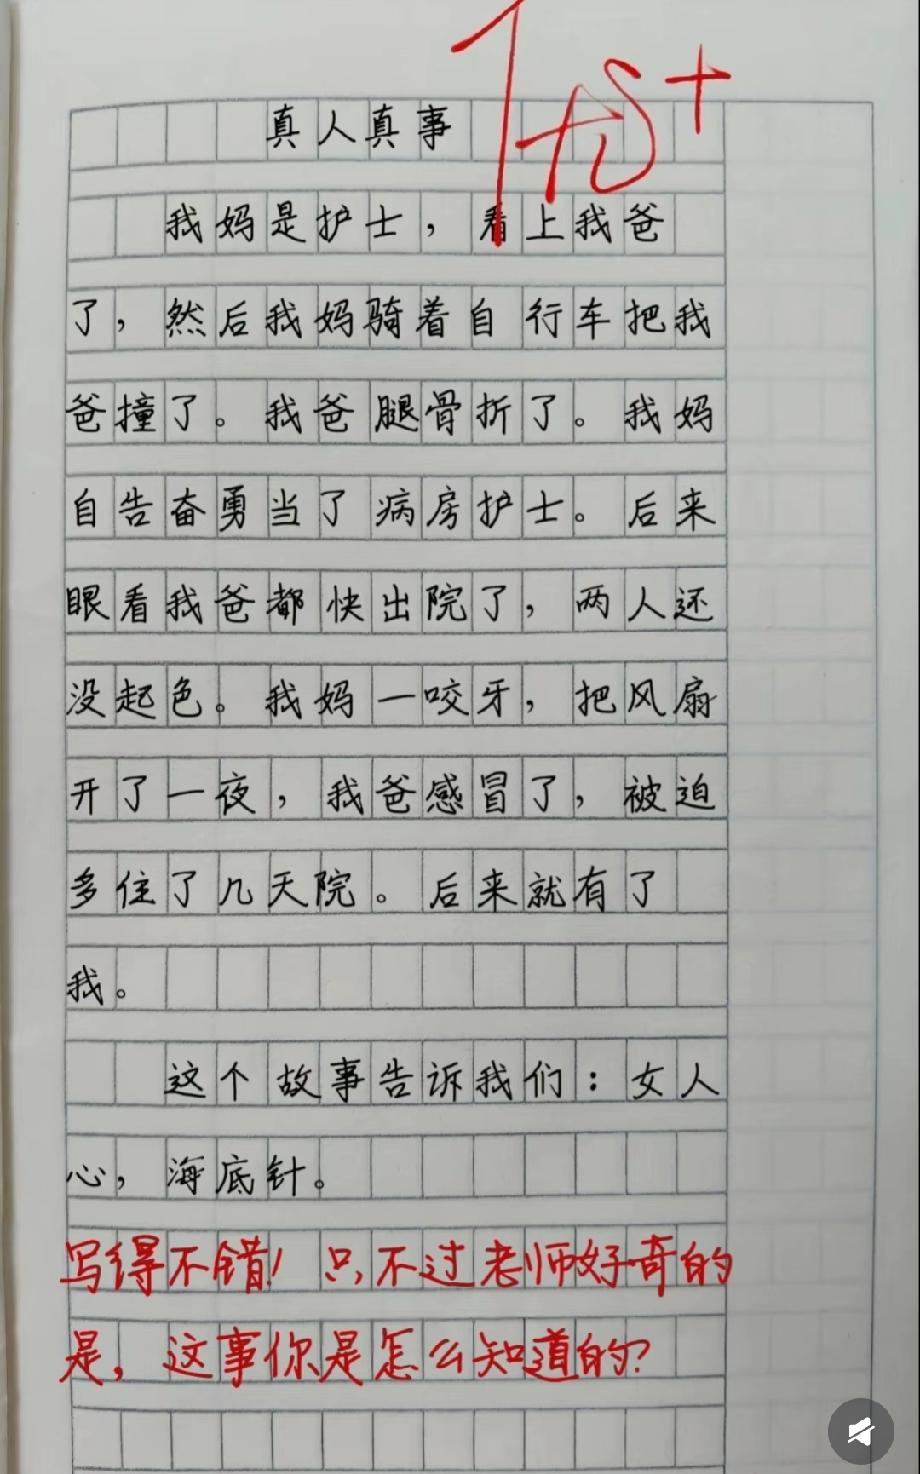 优+
真人真事
我妈是护士，看上我爸
了，然后我妈骑着自行车把我
爸撞了。我爸腿骨折了。我妈
自告奋勇当了病房护士。后来
眼看我爸都快出院了，两人还
没起色。我妈一咬牙，把风扇
开了一夜，我爸感冒了，被迫
多住了几天院。后来就有了
我。
这个故事告诉我们：女人
心，海底针。
写得不错！只不过老师好奇的
是，这事你是怎么知道的？